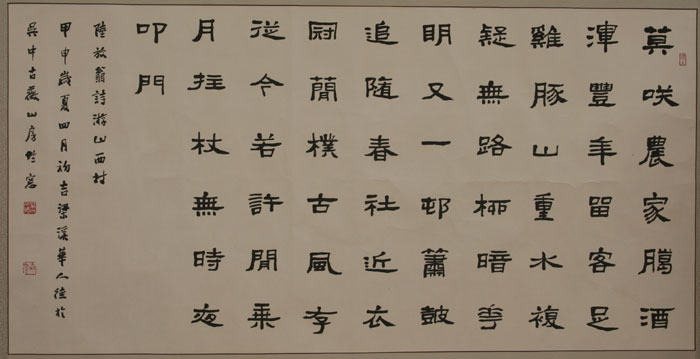 莫咲農家臈酒
渾豐年留客足
雞豚山重水複
疑無路柳暗華
明又一邨簫鼓
追隨春社近衣
冠簡樸古風存
從今若許閒乘
月拄杖無時夜
叩門
陸放翁詩游山西村
甲申歲夏四月初吉梁溪華人德於
吳中古薇山房竹窗